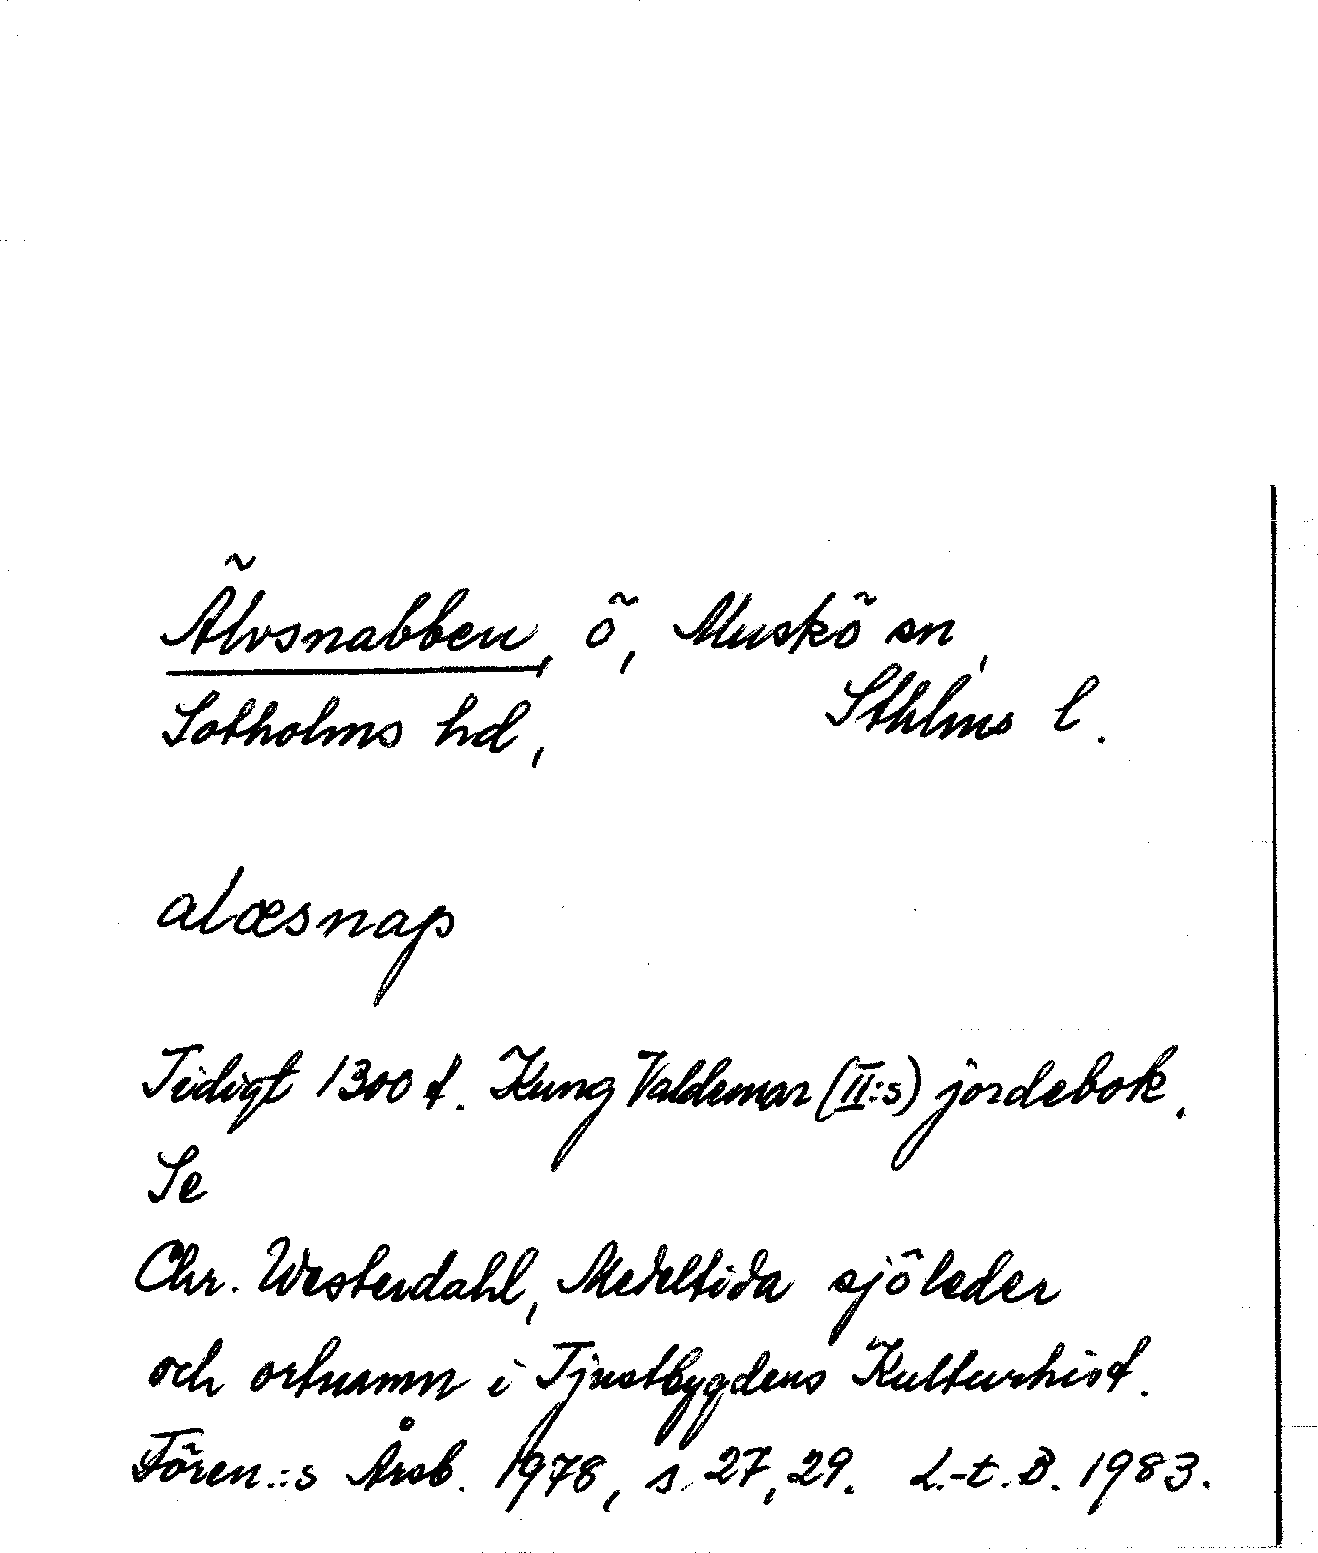 Älvsnabben, ö, Muskö sn,
Sotholms hd, Sthlms l.
alæsnap
Tidigt 1300 t. Kung Valdemar (II:s) jordebok.
Se
Chr. Westerdahl, Medeltida sjöleder
och ortnamn i Tjustbygdens Kulturhist.
Fören.:s Årsb. 1978, s. 27, 29. L.-t. B. 1983.